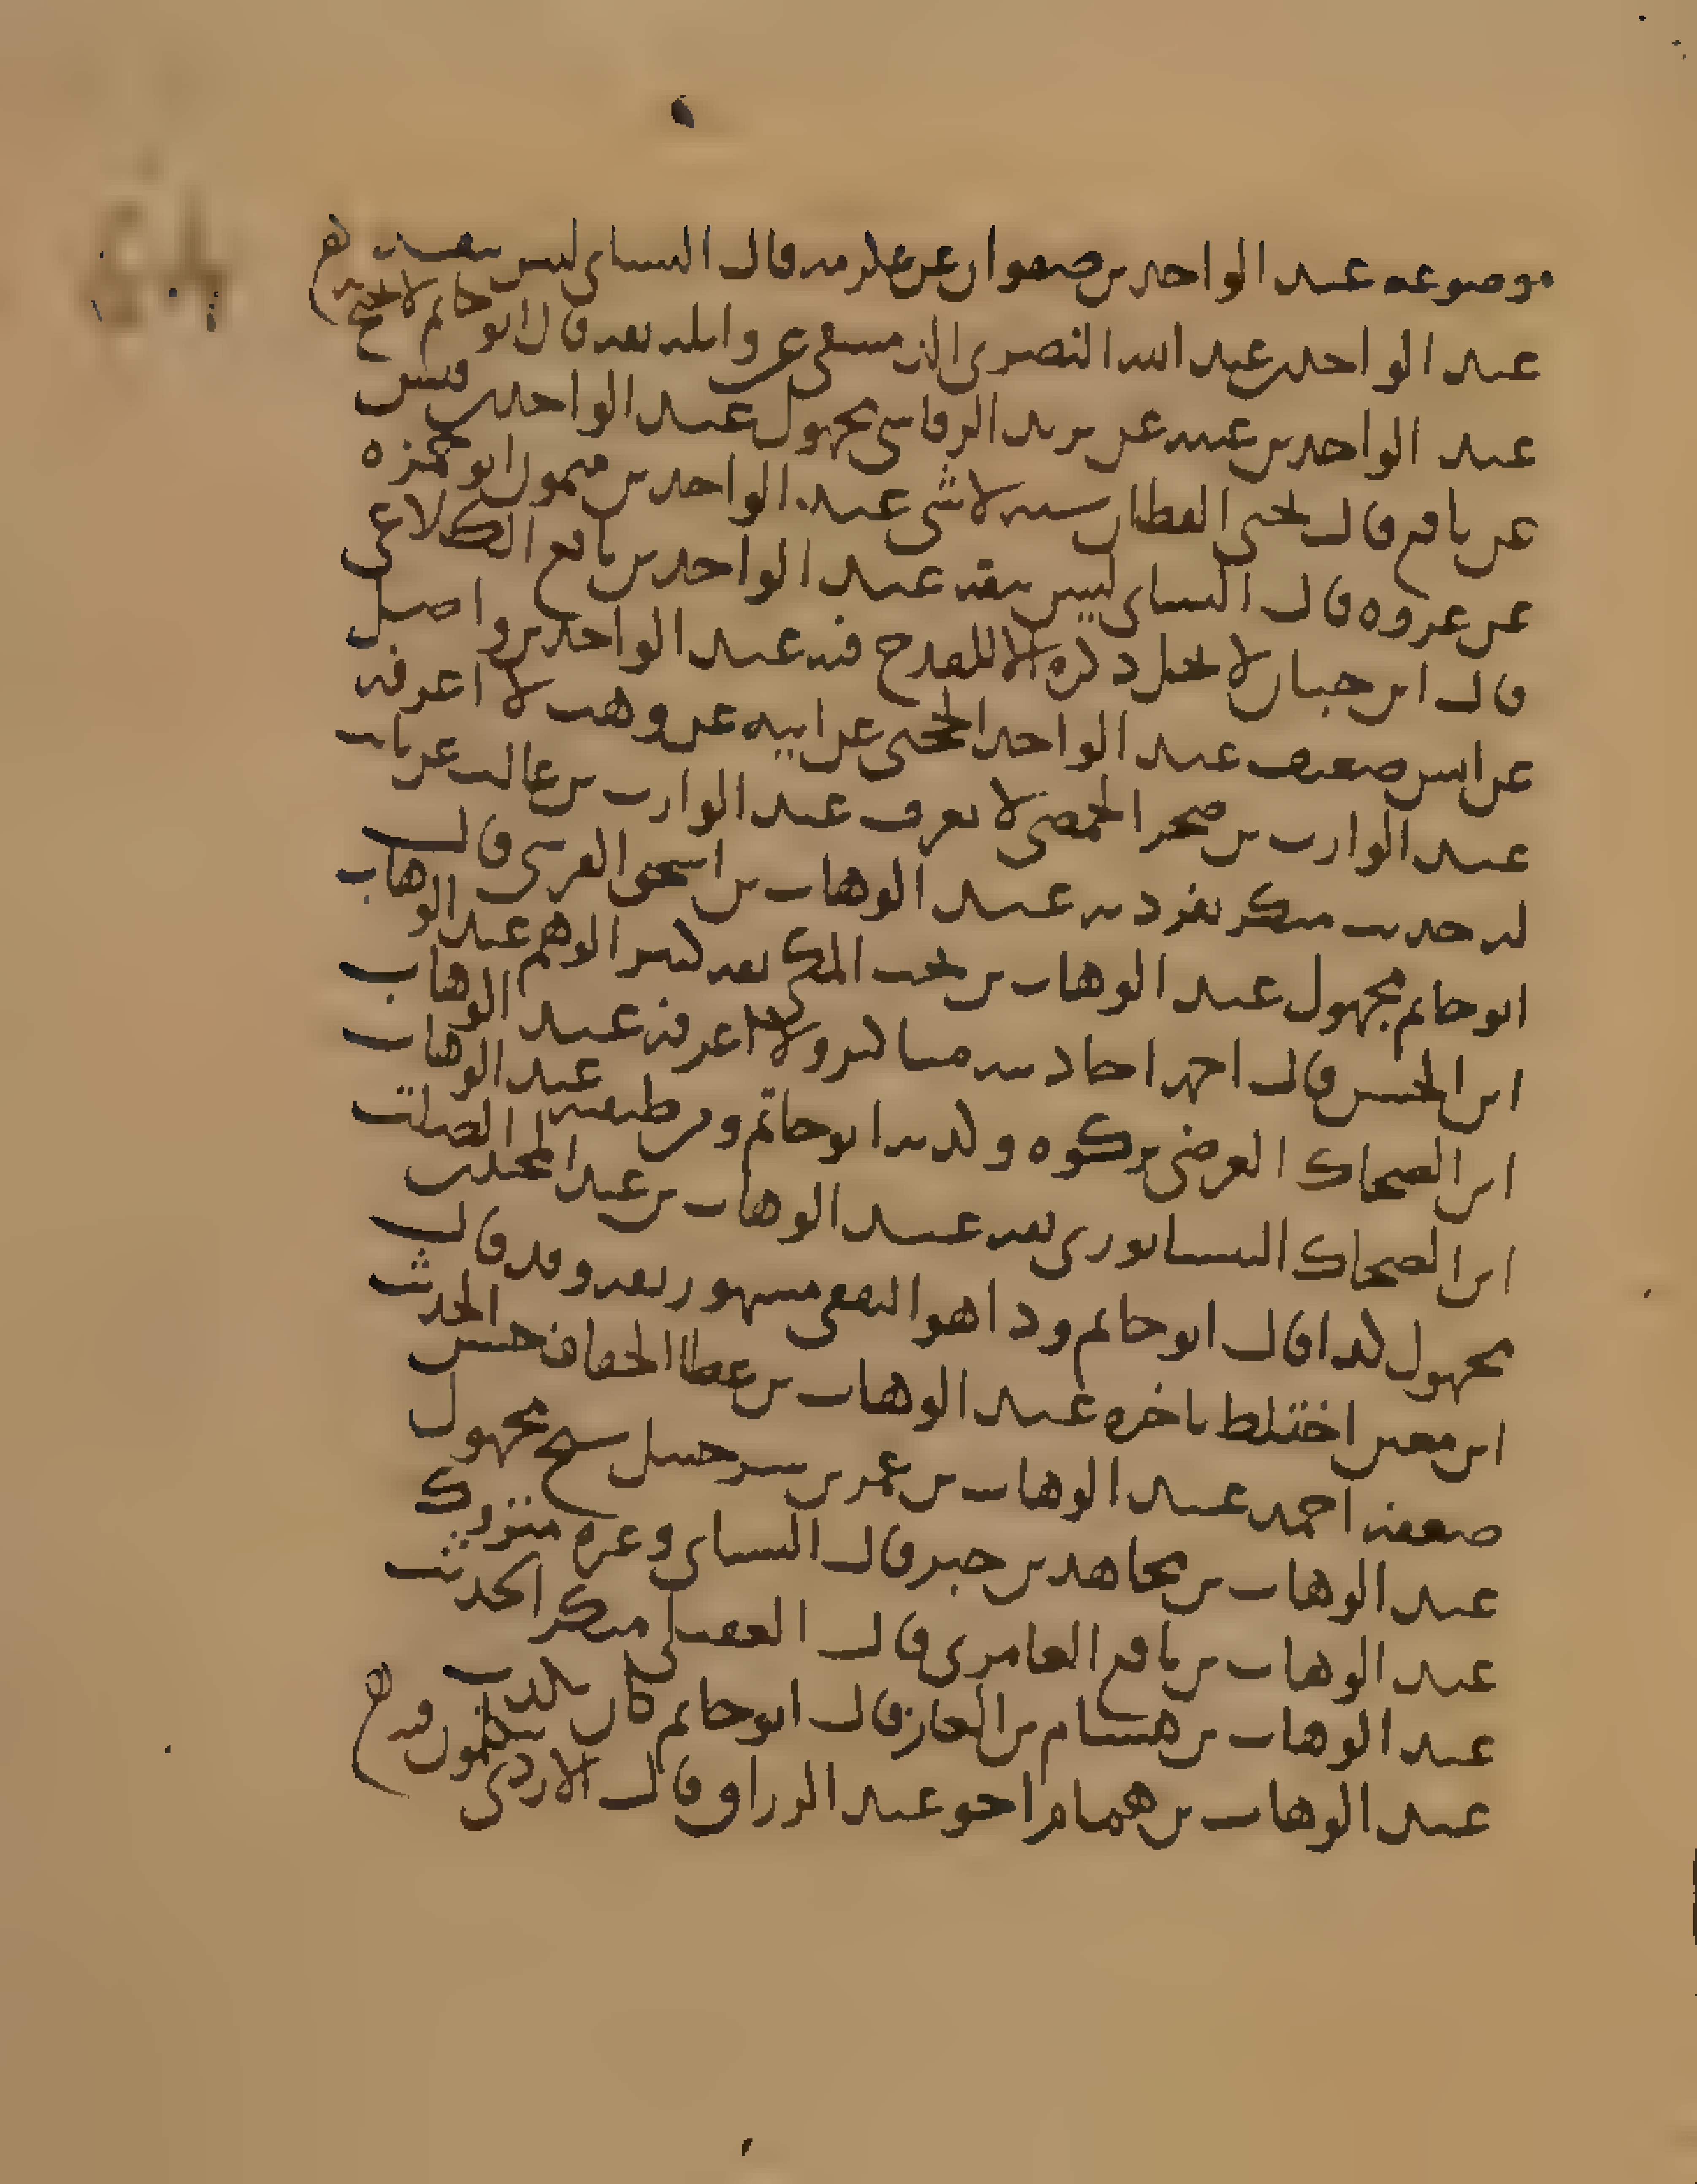 موضوعه عبد الواحد بن صفوان عن عكرمه قال النساى ليس بثقه
عبد الواحد بن عبد الله النصرى الدمشقى عن واثله ثقه قال ابو حاتم لا يحتج به
عبد الواحد بن عبيد عن يزيد الرقاشى مجهول عبد الواحد بن قيس
عن نافع قال يحيى القطان شبه لا شى عبد الواحد بن ميمون ابو حمزه
عن عروه قال النساى ليس بثقه عبد الواحد بن نافع الكلاعى
قال ابن حبان لا يحل ذكره الا للقدح فيه عبد الواحد بن واصل
عن انس ضعيف عبد الواحد الحجبى عن ابيه عن وهب لا اعرفه
عبد الوارث بن صخر الحمصى لا يعرف عبد الوارث بن غالب عن ثابت
له حديث منكر تفرد به عبد الوهاب بن اسحق القرشى قال
ابو حاتم مجهول عبد الوهاب بن بخت المكى ثقه كثير الوهم عبد الوهاب
ابن الحسن قال احمد احاديثه مناكير ولا اعرفه عبد الوهاب
ابن الضحاك العرضى تركوه وكذبه ابو حاتم ومن طبقته عبد الوهاب
ابن الضحاك النيسابورى ثقه عبد الوهاب بن عبد المجيد بن الصلت
مجهول كذا قال ابو حاتم وذا هو الثقفى مشهور ثقه وقد قال
ابن معين اختلط باخره عبد الوهاب بن عطا الخفاف حسن الحديث
ضعفه احمد عبد الوهاب بن عمر بن شرحبيل شيخ مجهول
عبد الوهاب بن مجاهد بن جبر قال النساى وغيره متروك
عبد الوهاب بن نافع العامرى قال العقيلى منكر الحديث
عبد الوهاب بن هشام بن الغاز قال ابو حاتم كان يكذب
عبد الوهاب بن همام اخو عبد الرزاق قال الازدى يتكلمون فيه